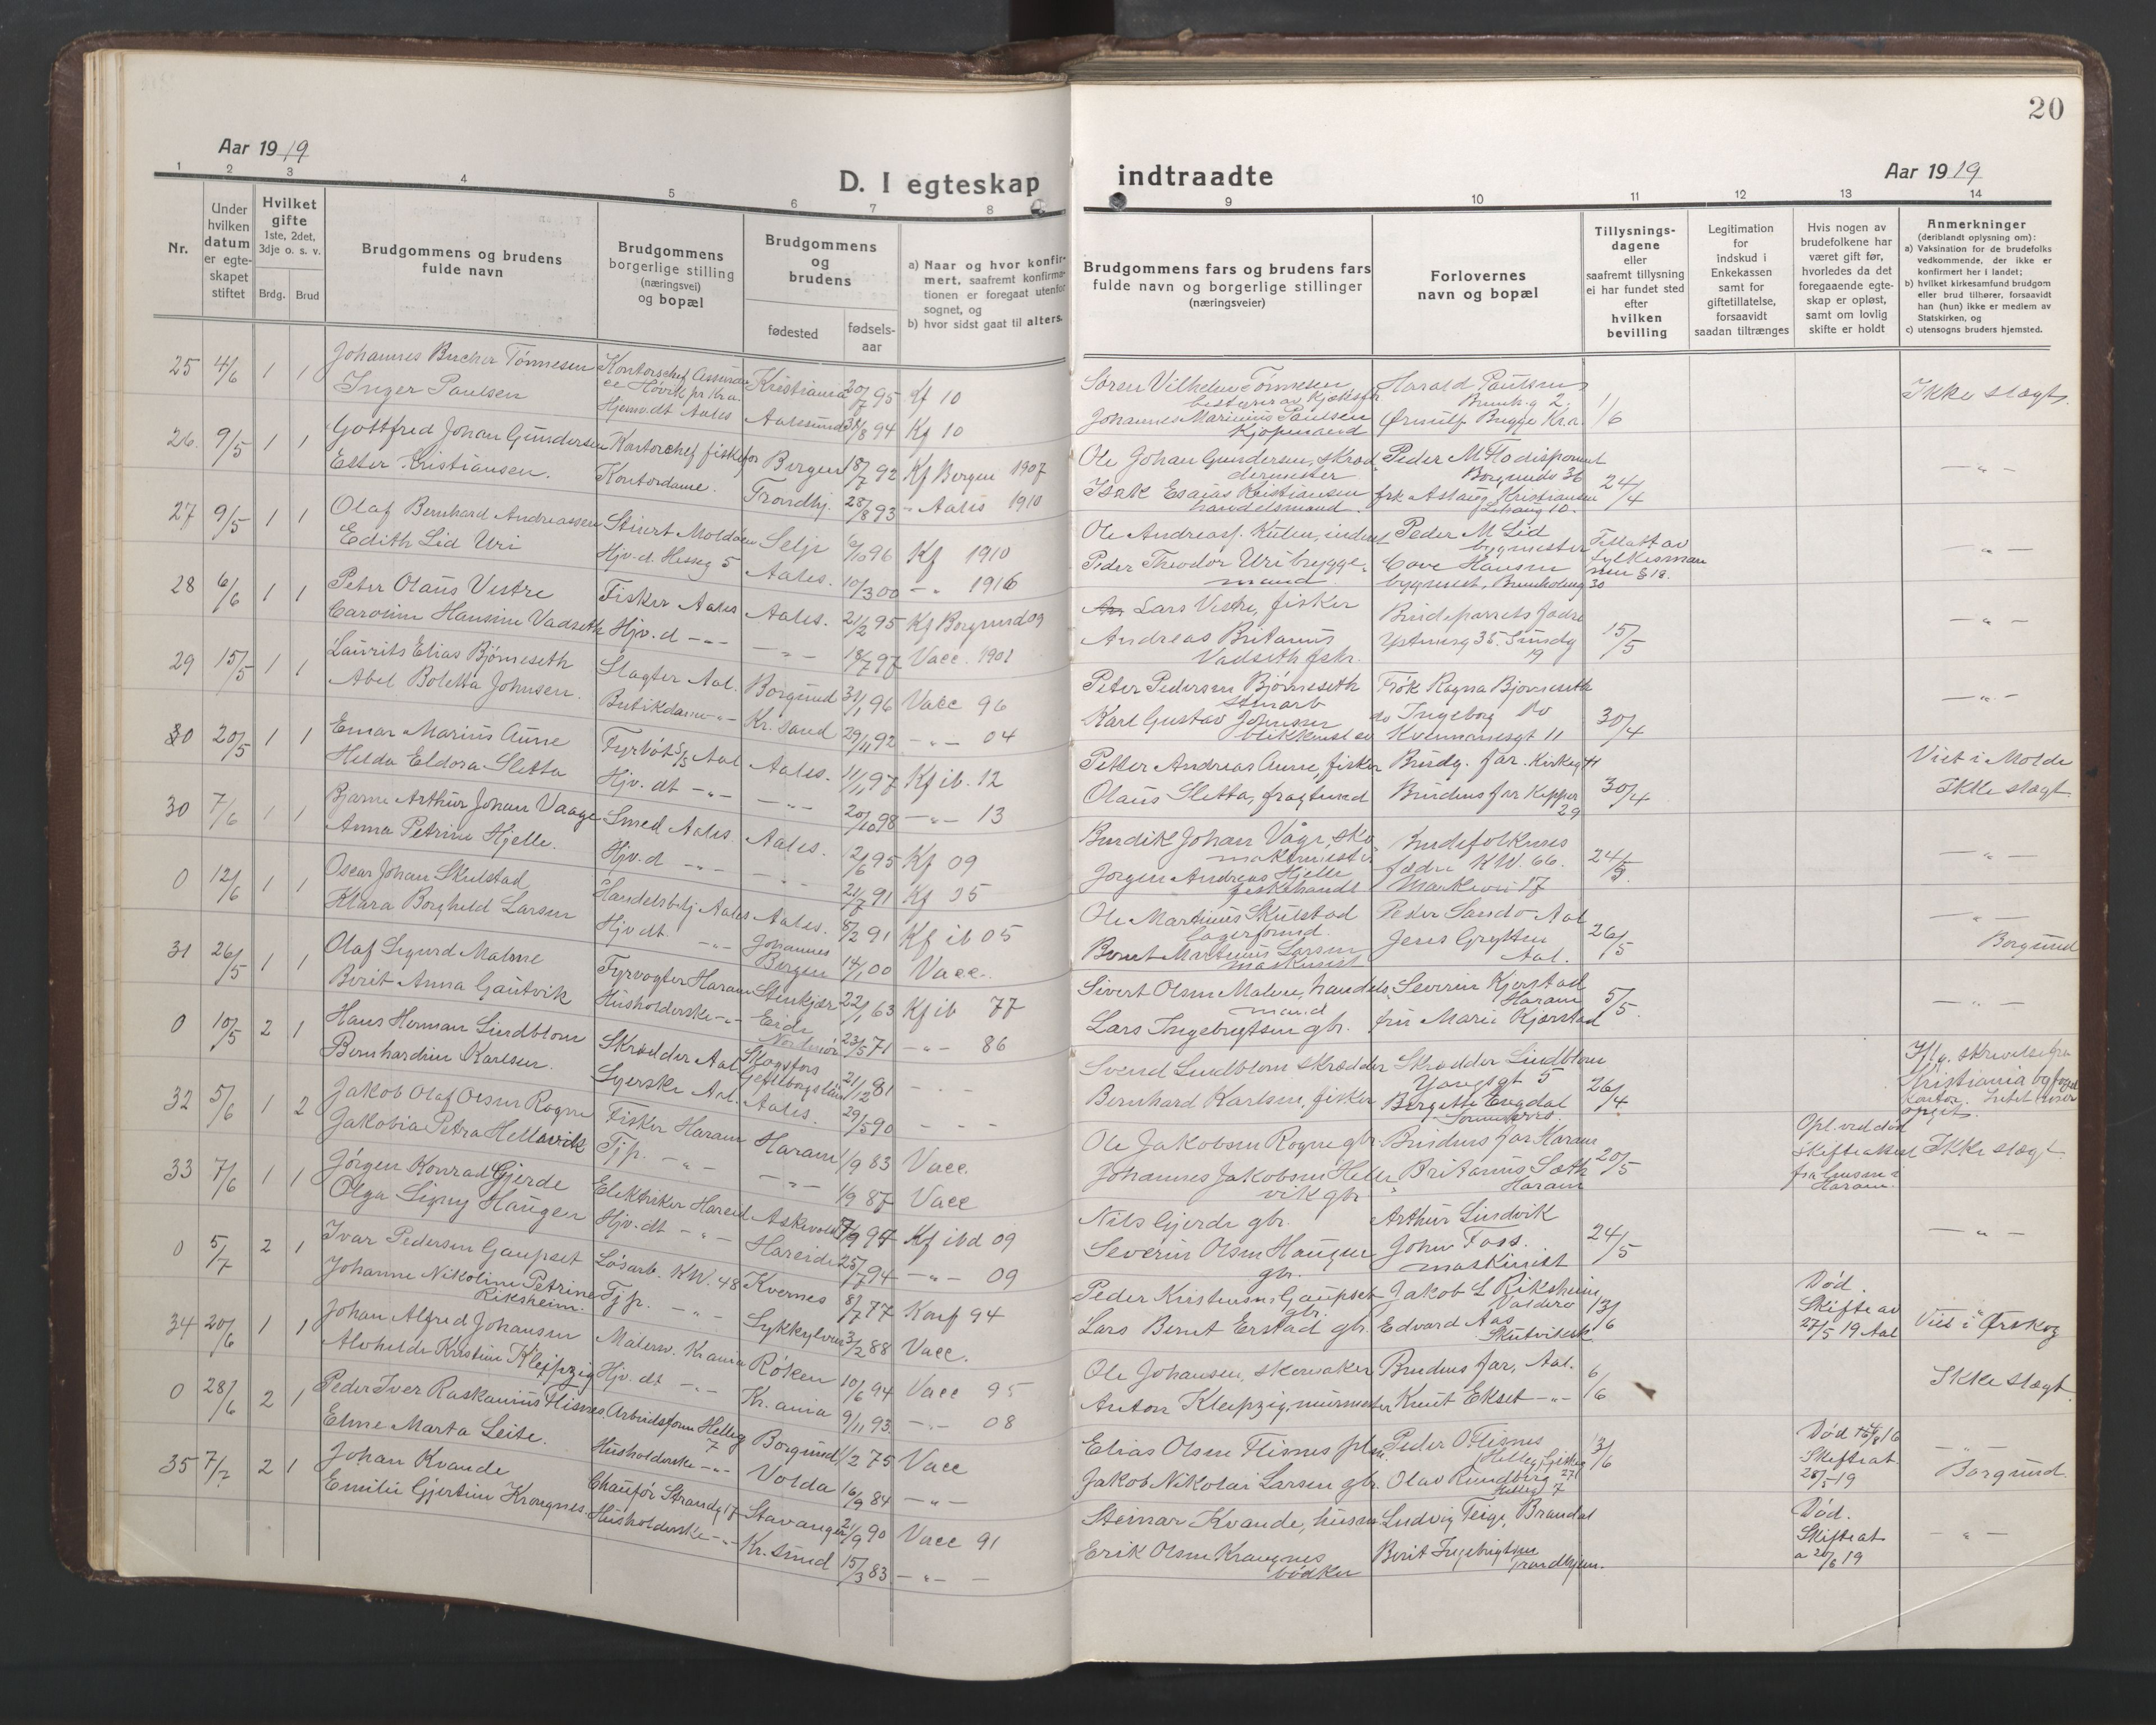 20
Aar 1919
D. I egteskap
indtraadte
Aar 1919
1 2 3 4 5 6 7 8
9 10 11 12 13 14
Nr.
Under hvilken datum er egteskapet stiftet
Hvilket gifte 1ste, 2det, 3dje o. s. v.
Brdg. Brud
Brudgommens og brudens fulde navn
Brudgommens borgerlige stilling (næringsvei) og bopæl
Brudgommens og brudens
fødested
fødselsaar
a) Naar og hvor konfirmert, saafremt konfirmationen er foregaat utenfor sognet, og
b) hvor sidst gaat til alters.
Brudgommens fars og brudens fars fulde navn og borgerlige stillinger (næringsveier)
Forlovernes navn og bopæl
Tillysningsdagene eller saafremt tillysning ei har fundet sted efter hvilken bevilling
Legitimation for indskud i Enkekassen samt for giftetillatelse, forsaavidt saadan tiltrænges
Hvis nogen av brudefolkene har været gift før, hvorledes da det foregaaende egteskap er opløst, samt om lovlig skifte er holdt
Anmerkninger (deriblandt oplysning om):
a) Vaksination for de brudefolks vedkommende, der ikke er konfirmert her i landet;
b) hvilket kirkesamfund brudgom eller brud tilhører, forsaavidt han (hun) ikke er medlem av Statskirken, og
c) utensogns bruders hjemsted.
25 4/6 1 1 Johannes Bucher Tönnesen Kontorchef Kristiania 20/7 95 Kf 10
Hövik pr Kra.
Inger Paulsen Hjemv.dt Aales Aalesund 31/8 94 Kf 10
Sören Vilhelm Tönnesen Harald Paulsen Ikke slegt.
Johannes Marinius Paulsen Kjöpmand Ørnulf Bugge Kra. 1/6
26. 9/5 1 1 Gottfred Johan Gundersen Kontorchef Bergen 18/7 92 Kf Bergen 1907
Ester Kristiansen. Kontordame. Trondhj. 28/8 93 " Aales 1910
Ole Johan Gundersen, skræddermester Peder M Flo disponent Borgundv 36
Isak Esaias Kristiansen handelsmand. frk Aslaug Kristiansen 24/4
27 9/5 1 1 Olaf Bernhard Andreassen Stuert Selje 6/10 96 Kf 1910
Edith Lid Uri Hjv.d. Hesseg 5 Aales. 10/3 00 -"- 1916
Peder M Lid bygmester Tillatt av fylkesmannen § 18.
Peder Theodor Uri bryggemand. Hansen bygmest, Brunholmg 30
28 6/6 1 1 Peter Olaus Vestre Fisker Aales Aales. 21/2 95 Kf Borgund 09
Caroline Hansine Vadseth Hjv.d -"- -"- 18/7 97 Vacc. 1901
Lars Vestre, fisker Brudeparrets fædre
Andreas Britanus Vadseth fskr. 15/5
29 15/5 1 1 Laurits Elias Björneseth Slagter Aal. Borgund 31/1 96 Vacc 96
Abel Boletta Johnsen. Butikdame -"- Kr. sand 29/11 92 -"- 04
Peter Pedersen Björneseth Frök Ragna Bjorneseth
Karl Gustav Johnsen do Ingeborg Do Kvennanesgt 11 30/4
30 20/5 1 1 Einar Marius Aune Fyrböt S/S Aal Aales. 11/1 97 Kf ib. 12
Helda Eldora Sletta Hjv. dt -"- -"- 20/10 98 -"- 13
Petter Andreas Aune, fisker Brudg. far. Kirkeg 11 Viet i Molde
Olaus Sletta, fragtmand Brudens far Kipper 29 30/4 Ikke slegt.
30 7/6 1 1 Bjarne Arthur Johan Vaage Smed Aales. Aales. 2/6 95 Kf 09
Anna Petrine Hjelle. Hjv.d -"- -"- 21/7 91 Kf 05
Johan Våge, skomakermester Brudefolkenes fædre KW. 66.
Jörgen Andreas Hjelle fiskehandl 24/5
0 12/6 1 1 Oscar Johan Skulstad Handelsbetj Aales Aales. 5/2 91 Kf ib 05
Klara Borghild Larsen Hjv dt. -"- Johannes Bergen 14/1 00 Vacc.
Ole Martinus Skulstad lagerformd. Peder Sandö Aal
Bernt Martinus Larsen maskinist Jens Grytten Aal. 26/5 Borgund
31 26/5 1 1 Olaf Sigurd Malme Fyrvogter Haram Stenkjær 22/1 63 Kf ib 77
Berit Anna Gautvik Husholderske -"- Eide Nordmör 23/5 71 -"- 86
Sivert Olsen Malme, handelsmand Severin Kjerstad Haram 5/5.
Lars Ingebrigtsen gbr. fru Marie Kjærstad
0 10/5 2 1 Hans Herman Lindblom Skrædder Aal. Skogsfors Gefleborgslän 21/12 81 - " -
Bernhardine Karlsen. Syerske Aal. Aales. 29/5 90 - - -
Svend Lindblom skrædder Skrædder Lindblom 5
Bernhard Karlsen, fisker Bergette Engdal 26/4
Iflg. skrivelse fra Kristiania
32 5/6 1 2 Jakob Olaf Olsen Rogne Fisker Haram Haram 1/9 83 Vacc.
Jakobia Petra Hellevik Tjp. -"- -"- 1/9 87 Vacc
Ole Jakobsen Rogne gbr. Brudens far Haram Opl. ved död
Johannes Jakobsen Hellevik gbr Britanus Sæth Haram 20/5 Skifteattest fra lensm i Haram. Ikke slegt.
33 7/6 1 1 Jörgen Konrad Gjerde Elektriker Hareid Askevold 97 Kf ibd 09
Olga Signy Haugen Hjv.dt -"- Hareid 25/7 94 -"- 09
Nils Gjerde gbr. Arthur Lindvik
Severin Olsen Haugen gbr. John Foss. maskinist 24/5
0 5/7 2 1 Ivar Pedersen Gaupset Lösarb. KW. 48 Kvernes 8/7 77 Konf 94
Johanne Nikoline Petrine Riksheim. Tjp. -"- Sykkylven 3/2 88 Vacc.
Peder Kristensen Gaupset gbr. Jakob L Riksheim Valderö 13/6
Lars Bernt Erstad gbr. Edvard Aas Död. Skifte av 27/5 19 Aal Viet i Ørskog
34 20/6 1 1 Johan Alfred Johansen Malersv. Krania Röken 10/6 94 Vacc 95
Alvhilde Kristine Kleipzig Hjv. dt -"- Kr. ania 9/11 93 -"- 08
Ole Johansen, Brudens far, Aal. 6/6 Ikke slegt
Anton Kleipzig, murmester Knut Ekset -"-
0 28/6 2 1 Peder Iver Raskanius Flisnes Arbeidsform Helleg 7 Borgund 1/2 75 Vacc
Eline Marta Leite. Husholderske -"- Volda 16/9 84 -"-
Elias Olsen Flisnes Peder O Flisnes 13/6 Död
Jakob Nikolai Larsen gbr. Olav Rundberg Helleg 7 Skifteat 28/5 19 Borgund.
35 7/7 2 1 Johan Kvande Chauför Strandg 17 Stavanger 21/9 90 Vacc 91
Emilie Gjertine Krongnes. Husholderske -"- Kr. sund 15/3 83 -"-
Steinar Kvande, husm Ludvig Teige, Brandal Död.
Erik Olsen Krangnes bödker Berit Ingebrigtsen Trondhjem. Skifteat a 20/6 19